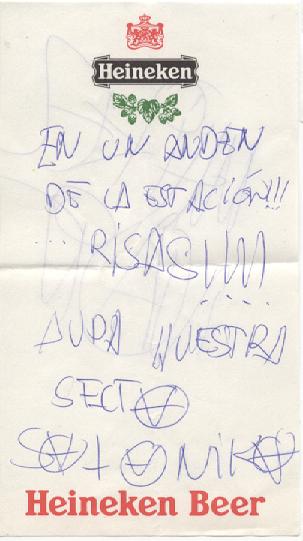 Heineken
EN UN ANDÉN
DE LA ESTACIÓN!!!
... RISAS!!!!
AUPA NUESTRA
SECTA
SATANIKA
Heineken Beer